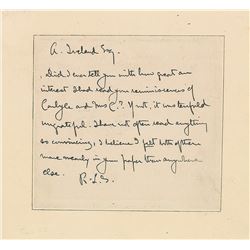 A. Ireland Esq.
Did I ever tell you with how great an
interest I had read your reminiscences of
Carlyle and Mrs C.? If not, it was tenfold
ungrateful. I have not often read anything
so convincing, I believe I felt both of them
more nearly in your paper than anywhere
else. R.L.S.